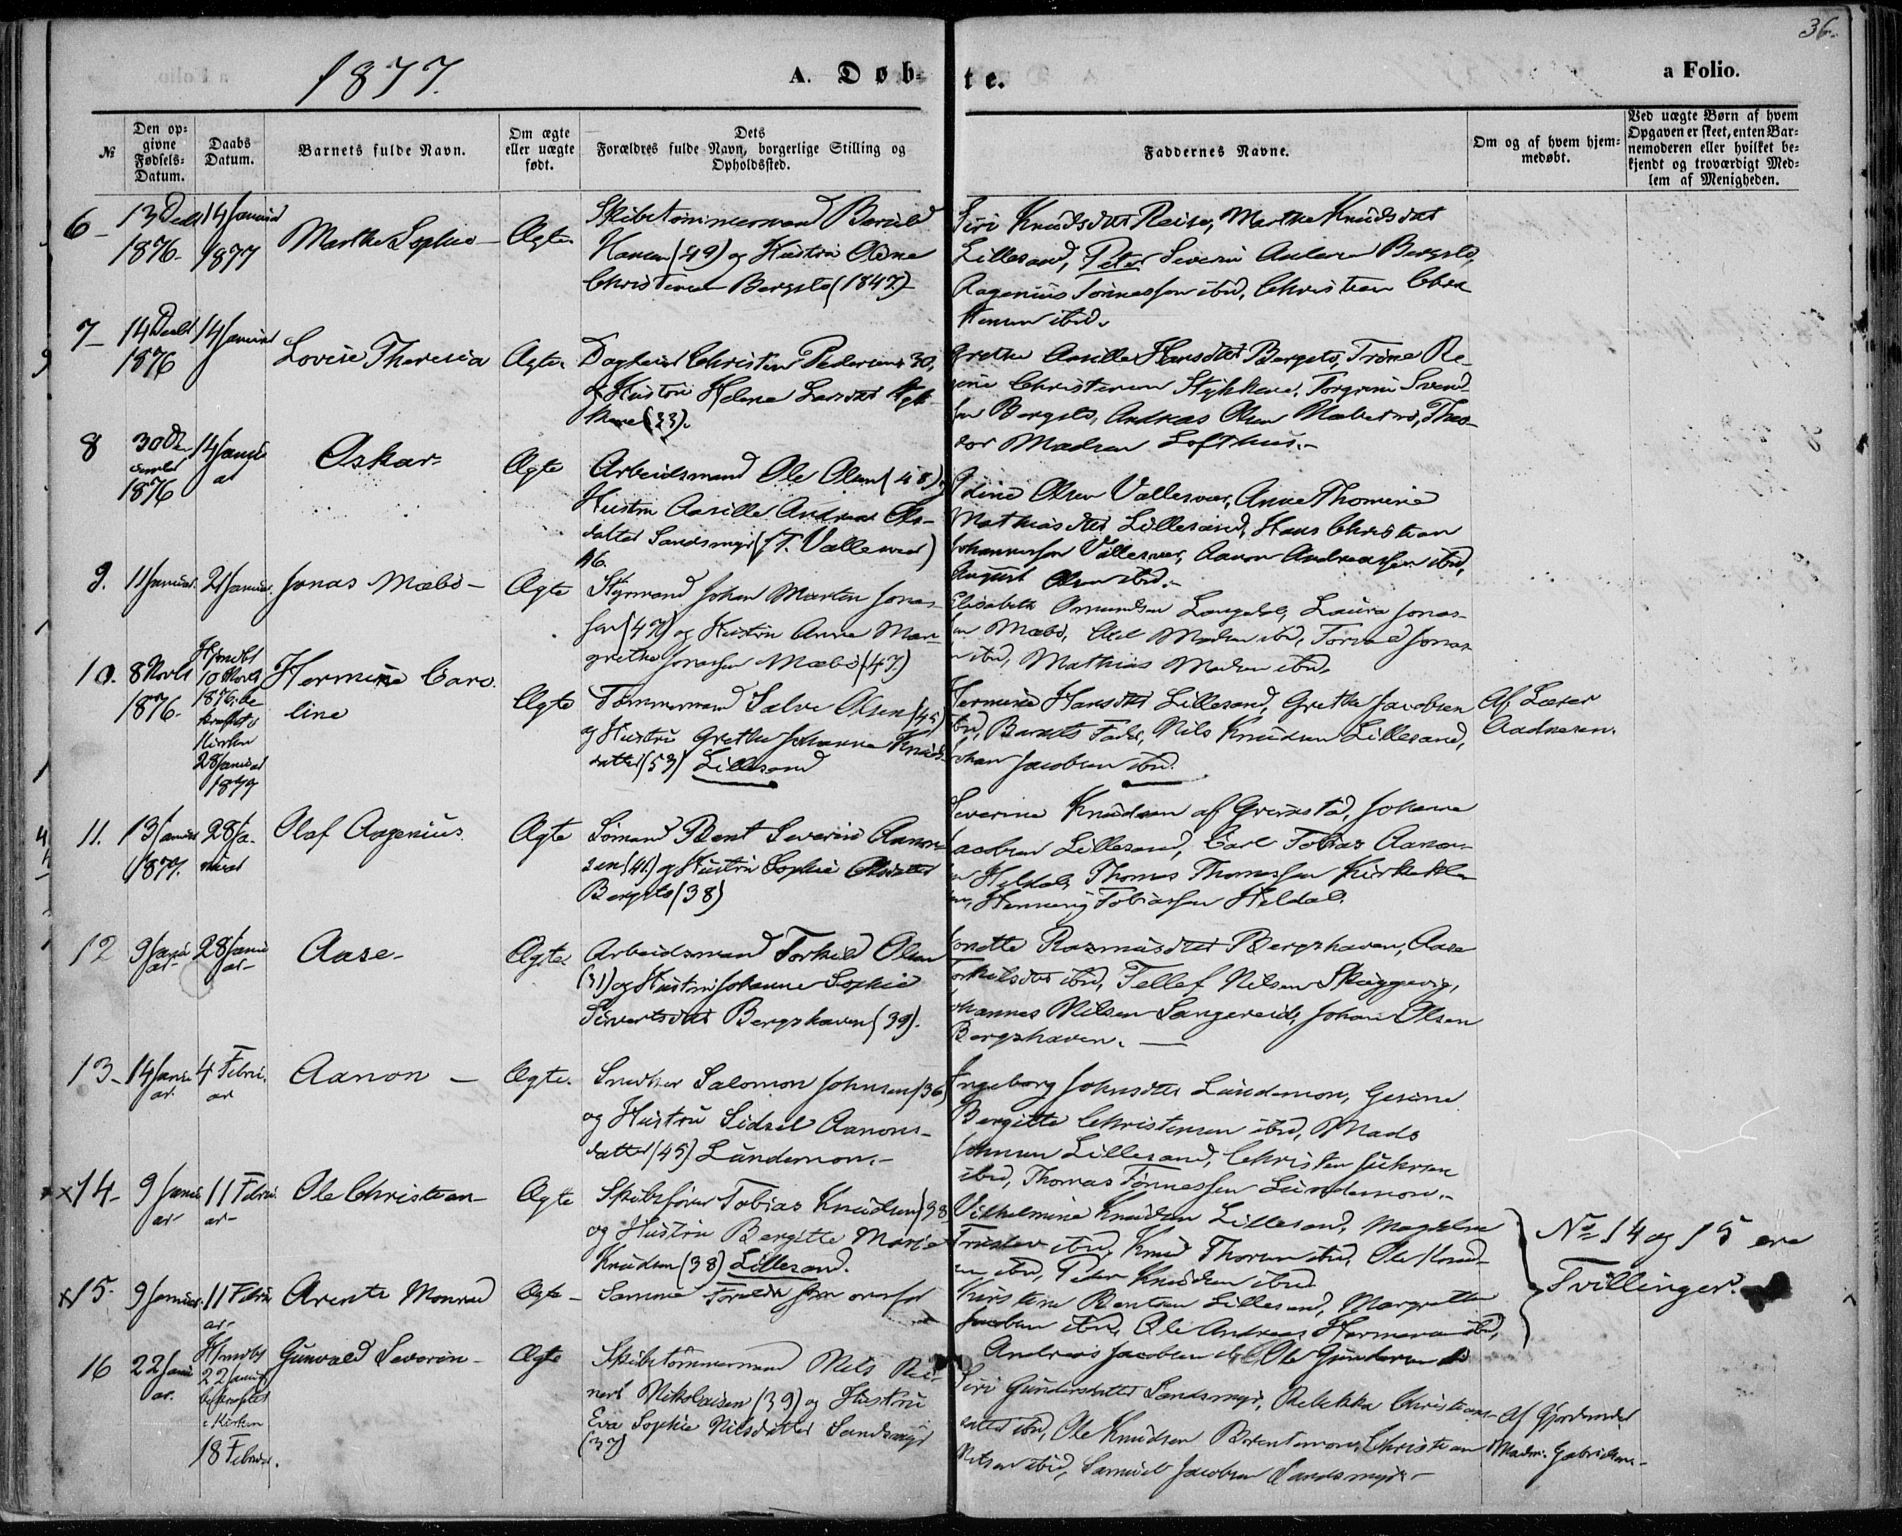 36.
1877.
A. Døb-
te.
a Folio.
№
Den op-
givne
Fødsels-
Datum.
Daabs
Datum.
Barnets fulde Navn.
Om ægte
eller uægte
født.
Dets
Forældres fulde Navn, borgerlige Stilling og
Opholdssted.
Faddernes Navne.
Om og af hvem hjem-
medøbt.
Ved uægte Børn af hvem
Opgaven er skeet, enten Bar-
nemoderen eller hvilket be-
kjendt og troværdigt Med-
lem af Menigheden.
6
13 Decbr
1876
14 Januar
1877
Marthe Sophie
Ægte
Skibstømmermand Berul
Hansen (49) og Hustru Oline
Christensen Bergstø (1847)
Siri Knudsdtr Reise, Marthe Knudsdat
Lillesand, Peter Severin Andersen Bergstø,
Aagenius Tønnessen ibid, Christian Chri
stensen ibid.
7
14 Decbr
1876
14 Januar
Lovise Theresia
Ægte
Dagleier Christen Pedersen 30,
og Hustru Helene Larsdtr Styk
kene (33).
Grethe Aasille Hansdtr Bergstø, Trine Re-
gine Christensen Stykkene, Torgrim Svend
sen Bergstø, Andreas Olsen Mæbø, Theo-
dor Madsen Lofthus.
8
30 De-
cember
1876
14 Janu
ar
Oskar
Ægte
Arbeidsmand Ole Olsen (48) og
Hustru Aasille Andrea Ols-
datter Sandsmyr (f. T. Vallesvær)
46.
Adine Olsen Vallesvær, Anne Thomine
Mathiasdtr Lillesand, Hans Christian
Johannessen Vallesvær, Aanon Andreassen ibid,
August Olsen ibid.
9.
11 Januar
21 Januar
Jonas Mæbø
Ægte
Styrmand Johan Martin Jonas-
sen (47) og Hustru Anne Mar-
grethe Jonassen Mæbø (47)
Elisabeth Osmundsen Langedal, Laura Jonas-
sen Mæbø, Madsen ibid, Jonas-
n ibid, Mathias Madsen ibid.
10.
8 Novbr
1876
Hjmdbt
10 Novbr
1876, be
kræftet i
Kirken
28 Januar
1877
Hermine Caro
line
Ægte
Tømmermand Salve Olsen (45)
og Hustru Grethe Johanne Knuds
datter (53) Lillesand
Hermine Hansdtr Lillesand, Grethe Jacobsen
ibid, Barnets Fader, Nils Knudsen Lillesand,
Johan Jacobsen ibid.
Af Lærer
Aadnesen.
11.
13 Januar
1877.
28 Ja-
nuar
Olaf Aagenius
Ægte
Sømand Bent Severin Aanon-
sen (41) og Hustru Sophie Olsdatter
Bergstø (38)
Severine Knudsen af Grimstad, Johanne
Jacobsen Lillesand, Carl Tobias Aanon-
n Heldal, Thomas Thomassen Kirkekle
ven, Henning Tobiassen Heldal.
12
9 Janu
ar
28 Janu
ar
Aase
Ægte
Arbeidsmand Torkild Olsen
(31) og Hustru Johanne Sophie
Sivertsdtr Bergshaven (39).
Jonette Rasmusdtr Bergshaven, Aase
Torkilsdtr ibid, Tellef Nilsen Skaggevig,
Johannes Nilsen Sangereid, Johan Olsen
Bergshaven.
13
14 Janu
ar.
4 Febru
ar
Aanon
Ægte.
Snedker Salomon Johnsen (36)
og Hustru Sidsel Aanons-
datter (45) Lundemon.
Ingeborg Johnsdtr Lundemon, Gesine
Bergitte Christensen ibid, Mads
Johnsen Lillesand, Christen
ibid, Thomas Tønnessen Lundemon.
xx14
9 Janu
ar
11 Febru
ar
Ole Christian
Ægte
Skibsfører Tobias Knudsen (38
og Hustru Bergitte Marie
Knudsen (38) Lillesand.
Vilhelmine Knudsen Lillesand, Magdalene
ibid, Knud Thorsen ibid, Ole Knud-
n ibid, Peter Knudsen ibid
№ 14 og 15 ere
Tvillinger.
xx15
9 Januar
11 Febru
ar
Arente Monrad
Ægte
Samme Forældre som ovenfor
Kirstine Bentsen Lillesand, Margrethe
Jacobsen ibid, Ole Andreas ibid,
Andreas Jacobsen Ole Gundersen
16
22 Janu
ar.
Hjmdbt
22 Januar
bekræftet
i Kirken
18 Februar.
Gunvald Severin
Ægte
Skibstømmermand Nils Rei-
nert Nikolaisen (39) og Hustru
Eva Sophie Nilsdatter Sandsmyr
(37)
Siri Gundersdatter Sandsmyr, Rebekka Christians-
datter ibid, Ole Knudsen Christian
Nilsen ibid, Samuel Jacobsen Sandsmyr
Af Gjordemoder
Madm. Gabrielsen